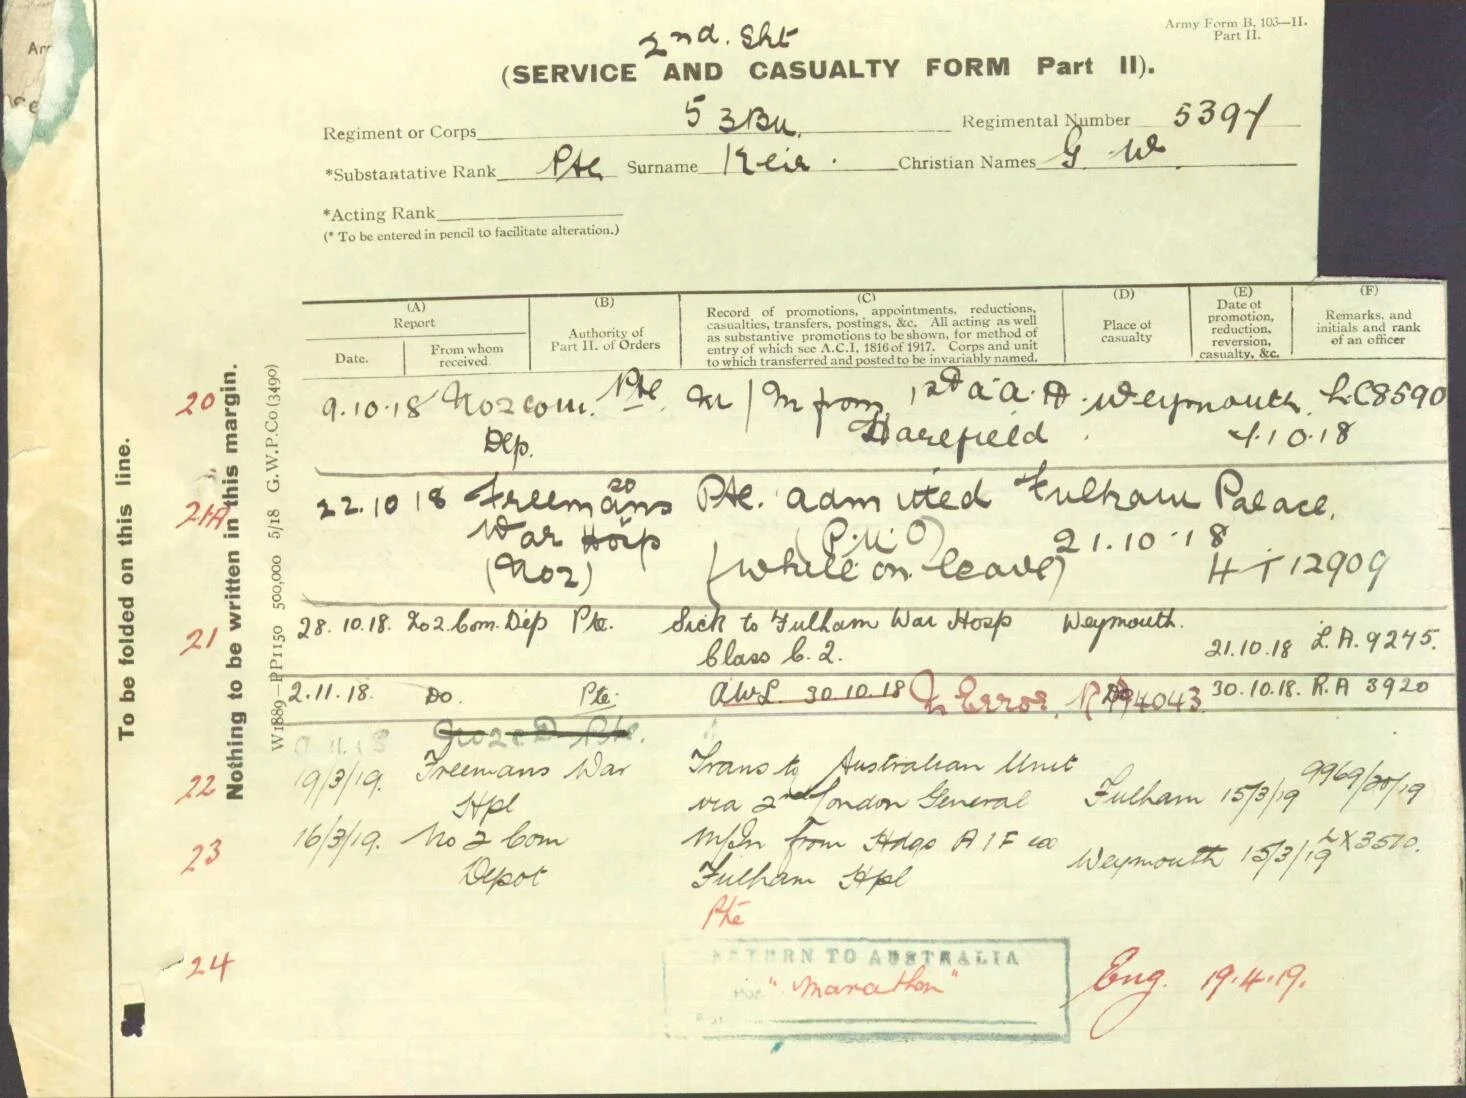 Army Form B. 103—II.
Part II.
2nd. Sht
(SERVICE AND CASUALTY FORM Part II).
Regiment or Corps 53 Bn. Regimental Number 5397
*Substantative Rank Pte Surname Keir. Christian Names G. W.
*Acting Rank
(* To be entered in pencil to facilitate alteration.)
To be folded on this line.
Nothing to be written in this margin.
W1889—PP1150 500,000 5/18 G.W.P.Co (3490)
(A) (B) (C) (D) (E) (F)
Report
Date. From whom received.
Authority of Part II. of Orders
Record of promotions, appointments, reductions,
casualties, transfers, postings, &c. All acting as well
as substantive promotions to be shown, for method of
entry of which see A.C.I, 1816 of 1917. Corps and unit
to which transferred and posted to be invariably named.
Place of casualty
Date of promotion, reduction, reversion, casualty, &c.
Remarks, and initials and rank of an officer
20 9.10.18 No2 Com. Pte M/In from 1st A.A.H. Weymouth. LC8590
Dep. Harefield. 4.10.18
21A 22.10 18 Freemans Pte. admitted Fulham Palace.
War Hosp (P.U.O) 21.10.18
(No2) (while on leave) 12909
21 28.10.18. No2 Com. Dep Pte. Sick to Fulham War Hosp Weymouth.
Class C.2. 21.10.18 L.A.9245.
2.11.18. Do. Pte. AWL 30.10.18 In Error, 4043 30.10.18. R.A 3920
22 19/3/19. Freemans War Trans to Australian Unit
Hpl via 2nd London General Fulham 15/3/19 9969/20/19
23 16/3/19. No 2 Com M/In from Hdqs A I F ex
Depot Fulham Hpl Weymouth 15/3/19 LX3570.
Pte
24 RETURN TO AUSTRALIA
"Marathon" Eng. 19.4.19.